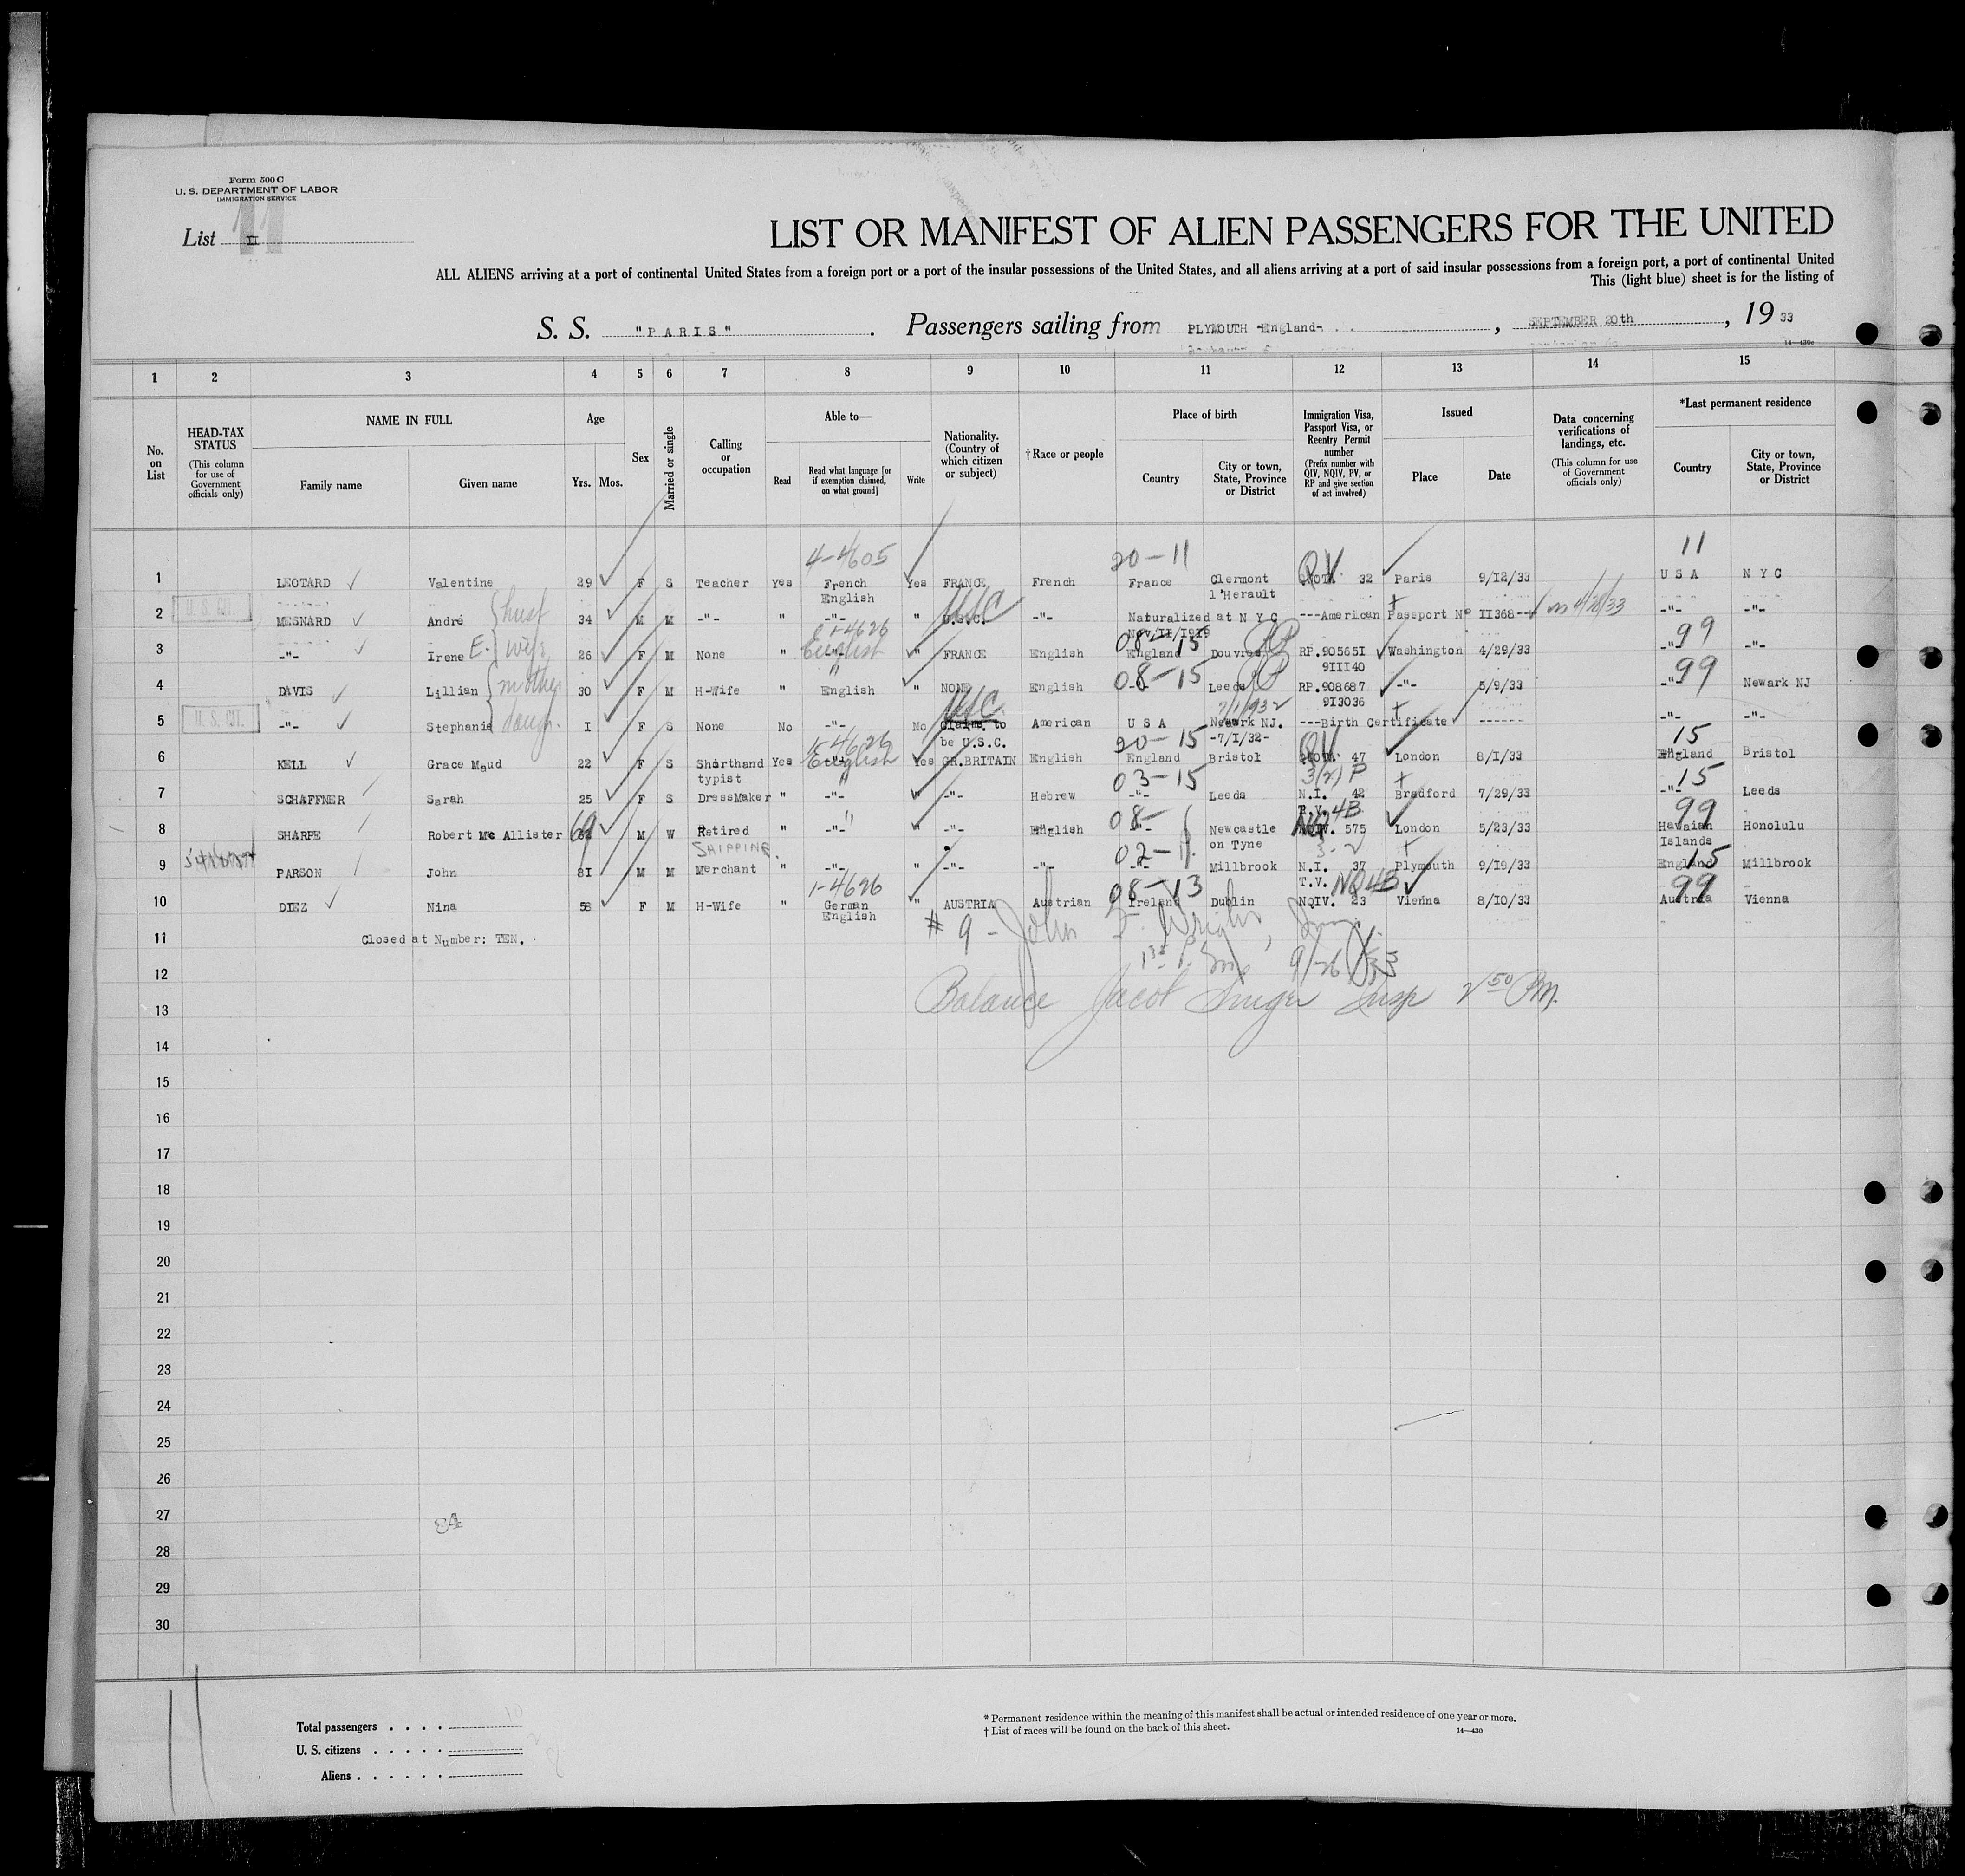 Form 500 C
U. S. DEPARTMENT OF LABOR
IMMIGRATION SERVICE
List 11
LIST OR MANIFEST OF ALIEN PASSENGERS FOR THE UNITED
ALL ALIENS arriving at a port of continental United States from a foreign port or a port of the insular possessions of the United States, and all aliens arriving at a port of said insular possessions from a foreign port, a port of continental United
This (light blue) sheet is for the listing of
S. S. "PARIS" . Passengers sailing from PLYMOUTH -England- , SEPTEMBER 20th , 19 33
14—430c
1 2 3 4 5 6 7 8 9 10 11 12 13 14 15
No. on List
HEAD-TAX STATUS (This column for use of Government officials only)
NAME IN FULL Family name Given name
Age Yrs. Mos.
Sex
Married or single
Calling or occupation
Able to— Read Read what language [or if exemption claimed, on what ground] Write
Nationality. (Country of which citizen or subject)
† Race or people
Place of birth Country City or town, State, Province or District
Immigration Visa, Passport Visa, or Reentry Permit number (Prefix number with QIV, NQIV, PV, or RP and give section of act involved)
Issued Place Date
Data concerning verifications of landings, etc. (This column for use of Government officials only)
*Last permanent residence Country City or town, State, Province or District
4-4605 20-11 QV 11
1 LEOTARD Valentine 29 F S Teacher Yes French Yes FRANCE French France Clermont 32 Paris 9/12/33 U S A N Y C
English l'Herault
2 U. S. CIT. MESNARD André husb 34 M M -"- " -"- " U.S.C. USC -"- Naturalized at N Y C ---American Passport N° II368-- 4/28/33 -"- -"-
Nov/II/1919
1-4626 08-15 RP 99
3 -"- Irene E. wife 26 F M None " -"- English " FRANCE English England Douvres RP.90565I Washington 4/29/33 -"- -"-
9III40
" 08-15 RP 99
4 DAVIS Lillian mother 30 F M H-Wife " English " NONE English -"- Leeds RP.908687 -"- 5/9/33 -"- Newark NJ
7/1/932 9I3036
USC
5 U. S. CIT. -"- Stephanie daugh. I F S None No -"- No Claims to American U S A Newark NJ. ---Birth Certificate ------ -"- -"-
be U.S.C. -7/I/32-
1-4626 20-15 QV 15
6 KELL Grace Maud 22 F S Shorthand Yes -"- English Yes GR.BRITAIN English England Bristol 47 London 8/1/33 England Bristol
typist
03-15 3(2) P 15
7 SCHAFFNER Sarah 25 F S DressMaker " -"- " -"- Hebrew -"- Leeds N.I. 42 Bradford 7/29/33 -"- Leeds
08- 4B 99
8 SHARPE Robert Mc Allister 69 M W Retired " -"- " -"- English -"- Newcastle NQIV. 575 London 5/23/33 Hawaian Honolulu
SHIPPING on Tyne Islands
02-11 3-2 15
9 PARSON John 8I M M Merchant " -"- " -"- -"- -"- Millbrook N.I. 37 Plymouth 9/19/33 England Millbrook
T.V.
1-4626 08-13 NQ4B 99
10 DIEZ Nina 58 F M H-Wife " German " AUSTRIA Austrian Ireland Dublin NQIV. 23 Vienna 8/10/33 Austria Vienna
English
# 9 - John F. Wright, Insp.
11 Closed at Number: TEN.
9/26/33
12
Balance Jacob Singer Insp 2 50 P.M.
13
14
15
16
17
18
19
20
21
22
23
24
25
26
27
84
28
29
30
Total passengers . . . . 10
U. S. citizens . . . . . 2
Aliens . . . . . . 8
* Permanent residence within the meaning of this manifest shall be actual or intended residence of one year or more.
† List of races will be found on the back of this sheet.
14—430